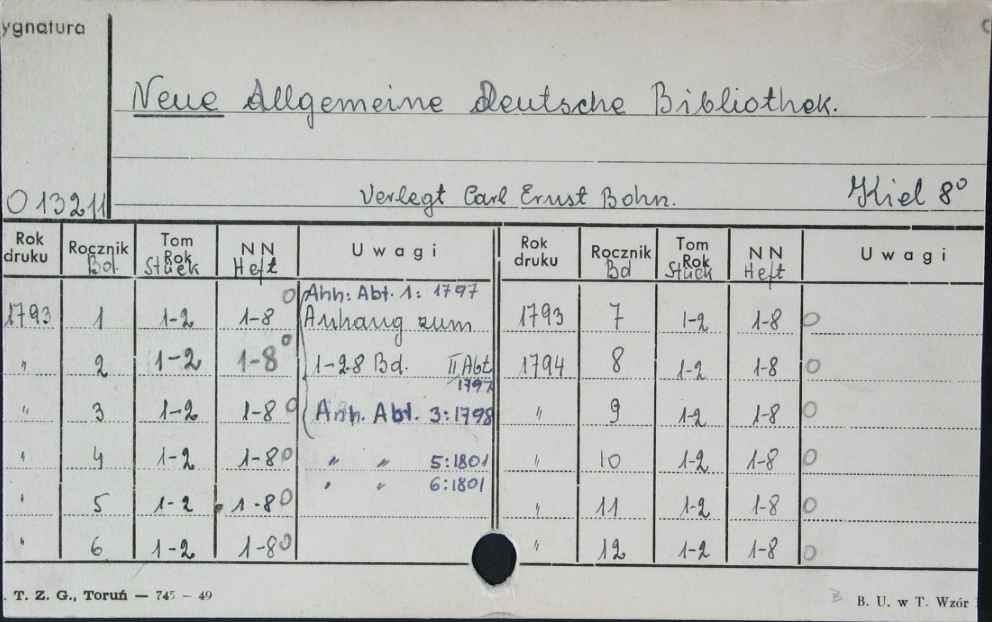 ygnatura
Neue Allgemeine Deutsche Bibliothek.
O 13211 Verlegt Carl Ernst Bohn. Kiel 8°
Rok druku Rocznik Bd. Tom Rok Stück NN Heft Uwagi Rok druku Rocznik Bd Tom Rok Stück NN Heft Uwagi
Anh: Abt. 1: 1797
1793 1 1-2 1-8 0 Anhang zum 1793 7 1-2 1-8 0
" 2 1-2 1-8 0 1-28 Bd. II Abt 1794 8 1-2 1-8 0
1797
" 3 1-2 1-8 0 Anh. Abt. 3:1798 " 9 1-2 1-8 0
" 4 1-2 1-8 0 " " 5:1801 " 10 1-2 1-8 0
" " 6:1801
" 5 1-2 1-8 0 " 11 1-2 1-8 0
" 6 1-2 1-8 0 " 12 1-2 1-8 0
. T. Z. G., Toruń — 745 - 49 B. U. w T. Wzór